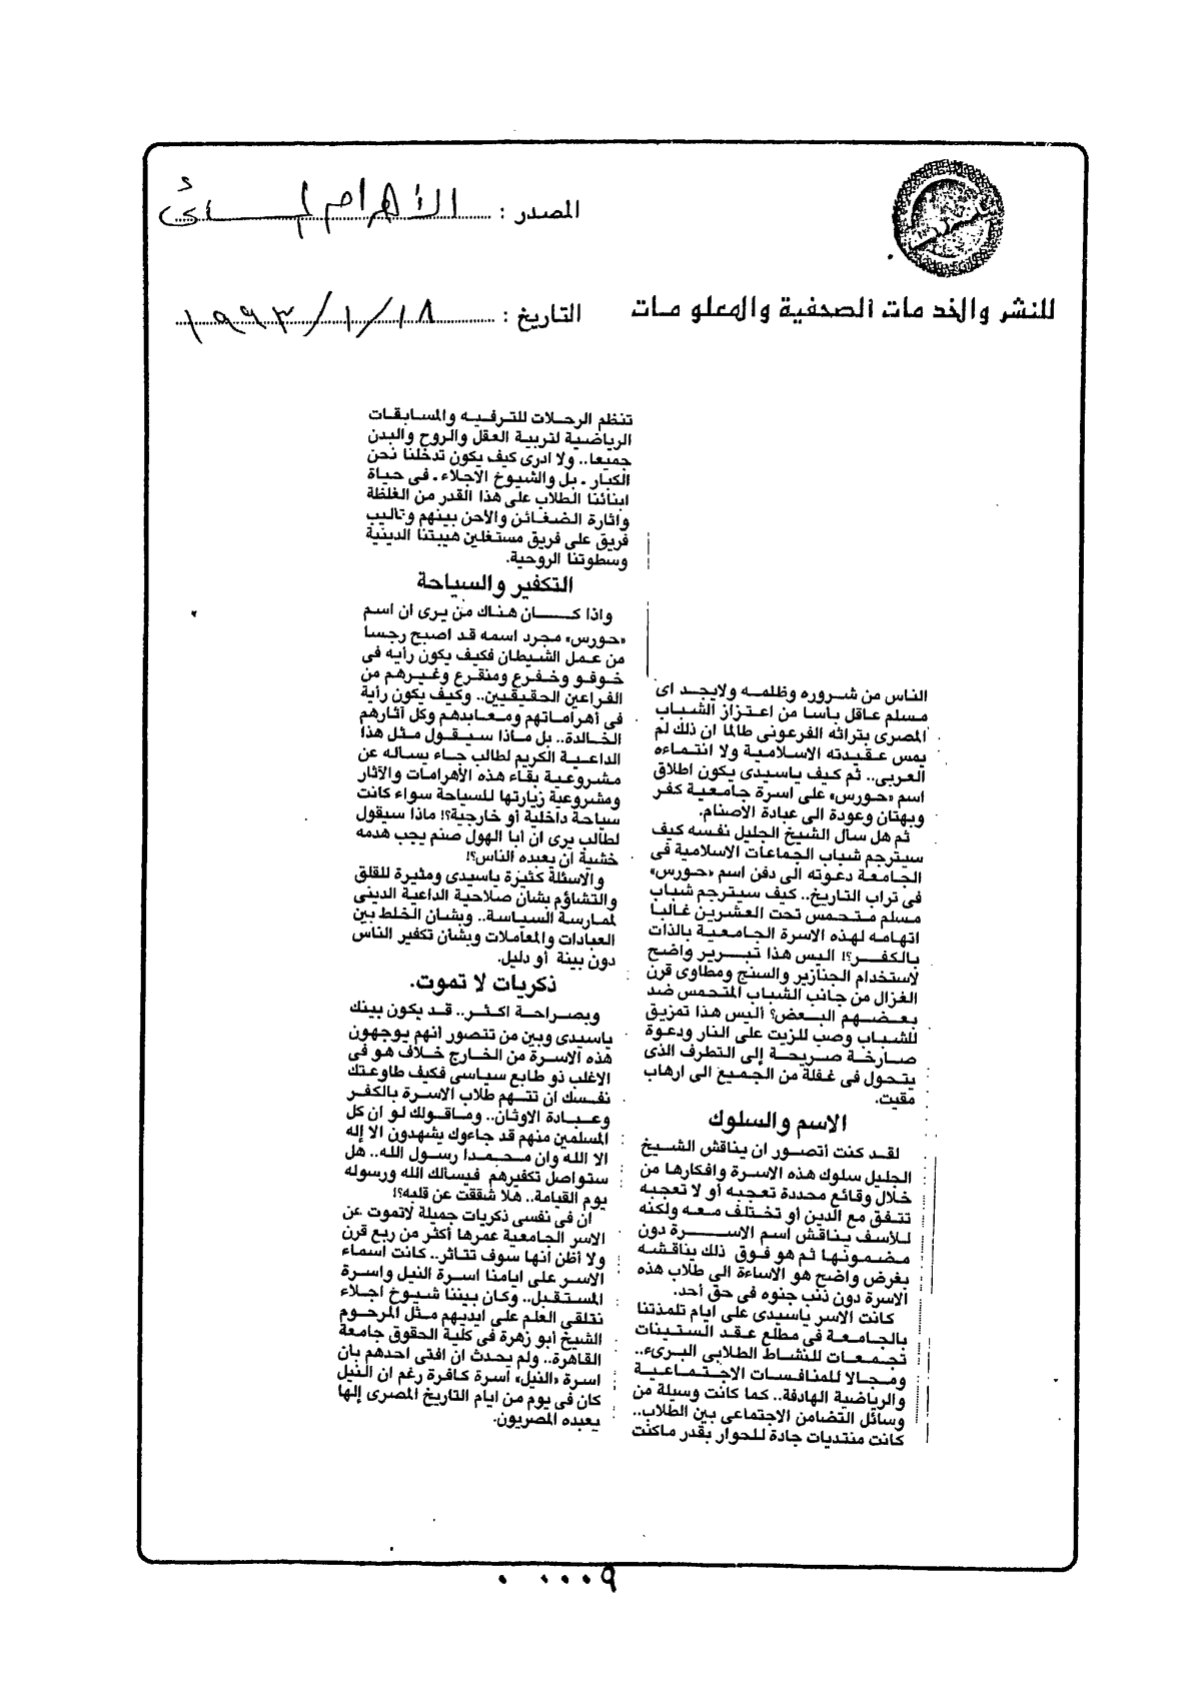 المصدر : الأهرام المسائى
للنشر والخدمات الصحفية والمعلومات
التاريخ : ١٨/١/١٩٩٣
الناس من شروره وظلمه ولايجد اى
مسلم عاقل بأسا من اعتزاز الشباب
المصرى بتراثه الفرعونى طالما ان ذلك لم
يمس عقيدته الاسلامية ولا انتماءه
العربى.. ثم كيف ياسيدى يكون اطلاق
اسم «حورس» على اسرة جامعية كفر
وبهتان وعودة الى عبادة الأصنام.
ثم هل سال الشيخ الجليل نفسه كيف
سيترجم شباب الجماعات الاسلامية فى
الجامعة دعوته الى دفن اسم «حورس»
فى تراب التاريخ.. كيف سيترجم شباب
مسلم متحمس تحت العشرين غالبا
اتهامه لهذه الاسرة الجامعية بالذات
بالكفر؟! اليس هذا تبرير واضح
لاستخدام الجنازير والسنج ومطاوى قرن
الغزال من جانب الشباب المتحمس ضد
بعضهم البعض؟ أليس هذا تمزيق
للشباب وصب للزيت على النار ودعوة
صارخة صريحة إلى التطرف الذى
يتحول فى غفلة من الجميع الى ارهاب
مقيت.
الاسم والسلوك
لقد كنت أتصور ان يناقش الشيخ
الجليل سلوك هذه الاسرة وافكارها من
خلال وقائع محددة تعجبه أو لا تعجبه
تتفق مع الدين أو تختلف معه ولكنه
للأسف يناقش اسم الاسرة دون
مضمونها ثم هو فوق ذلك يناقشه
بغرض واضح هو الاساءة الى طلاب هذه
الاسرة دون ذنب جنوه فى حق أحد.
كانت الاسر ياسيدى على ايام تلمذتنا
بالجامعة فى مطلع عقد الستينات
تجمعات للنشاط الطلابى البرىء..
ومجالا للمنافسات الاجتماعية
والرياضية الهادفة.. كما كانت وسيلة من
وسائل التضامن الاجتماعى بين الطلاب..
كانت منتديات جادة للحوار بقدر ماكنت
تنظم الرحلات للترفيه والمسابقات
الرياضية لتربية العقل والروح والبدن
جميعا.. ولا ادرى كيف يكون تدخلنا نحن
الكبار ـ بل والشيوخ الاجلاء ـ فى حياة
ابنائنا الطلاب على هذا القدر من الغلظة
واثارة الضغائن والاحن بينهم وتأليب
فريق على فريق مستغلين هيبتنا الدينية
وسطوتنا الروحية.
التكفير والسياحة
واذا كان هناك من يرى ان اسم
«حورس» مجرد اسمه قد اصبح رجسا
من عمل الشيطان فكيف يكون رأيه فى
خوفو وخفرع ومنقرع وغيرهم من
الفراعين الحقيقيين.. وكيف يكون رأية
فى أهراماتهم ومعابدهم وكل آثارهم
الخالدة.. بل ماذا سيقول مثل هذا
الداعية الكريم لطالب جاء يساله عن
مشروعية بقاء هذه الأهرامات والآثار
ومشروعية زيارتها للسياحة سواء كانت
سياحة داخلية أو خارجية؟! ماذا سيقول
لطالب يرى ان أبا الهول صنم يجب هدمه
خشية أن يعبده الناس؟!
والاسئلة كثيرة ياسيدى ومثيرة للقلق
والتشاؤم بشأن صلاحية الداعية الدينى
لممارسة السياسة.. وبشان الخلط بين
العبادات والمعاملات وبشأن تكفير الناس
دون بينة أو دليل.
ذكريات لا تموت.
وبصراحة اكثر.. قد يكون بينك
ياسيدى وبين من تتصور انهم يوجهون
هذه الاسرة من الخارج خلاف هو فى
الاغلب ذو طابع سياسى فكيف طاوعتك
نفسك ان تتهم طلاب الاسرة بالكفر
وعبادة الاوثان.. وماقولك لو ان كل
المسلمين منهم قد جاءوك يشهدون الا إله
الا الله وان محمدا رسول الله.. هل
ستواصل تكفيرهم فيسألك الله ورسوله
يوم القيامة.. هلا شققت عن قلبه؟!
ان فى نفسى ذكريات جميلة لاتموت عن
الاسر الجامعية عمرها أكثر من ربع قرن
ولا أظن أنها سوف تتاثر.. كانت اسماء
الاسر على ايامنا اسرة النيل واسرة
المستقبل.. وكان بيننا شيوخ اجلاء
نتلقى العلم على ايديهم مثل المرحوم
الشيخ أبو زهرة فى كلية الحقوق جامعة
القاهرة.. ولم يحدث ان افتى احدهم بان
اسرة «النيل» أسرة كافرة رغم ان النيل
كان فى يوم من ايام التاريخ المصرى إلها
يعبده المصريون.